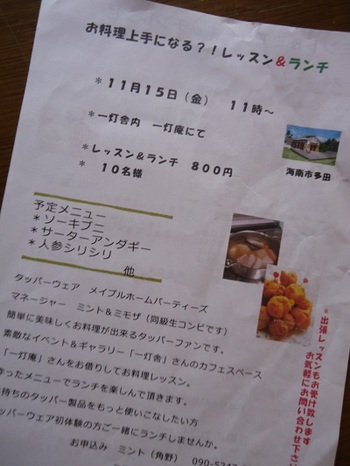 お料理上手になる？！レッスン＆ランチ
＊１１月１５日（金）　１１時～
＊一灯舎内　一灯庵にて
＊レッスン＆ランチ　８００円
＊　１０名様
海南市多田
予定メニュー
＊ソーキブニ
＊サーターアンダギー
＊人参シリシリ
他
タッパーウェア　メイプルホームパーティーズ
マネージャー　ミント＆ミモザ（同級生コンビです）
簡単に美味しくお料理が出来るタッパーファンです。
素敵なイベント＆ギャラリー「一灯舎」さんのカフェスペース
「一灯庵」さんをお借りしてお料理レッスン。
作ったメニューでランチを楽しんで頂きます。
持ちのタッパー製品をもっと使いこなしたい方
タッパーウェア初体験の方ご一緒にランチしませんか。
お申込み　ミント（角野）　090-5247
＊出張レッスンもお受け致します
お気軽にお問い合わせ下さい